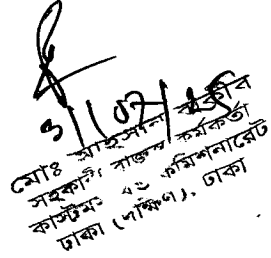 মোঃ আহসান কবীর
সহকারী রাজস্ব কর্মকর্তা
কাস্টমস এন্ড কমিশনারেট
ঢাকা (দক্ষিণ), ঢাকা